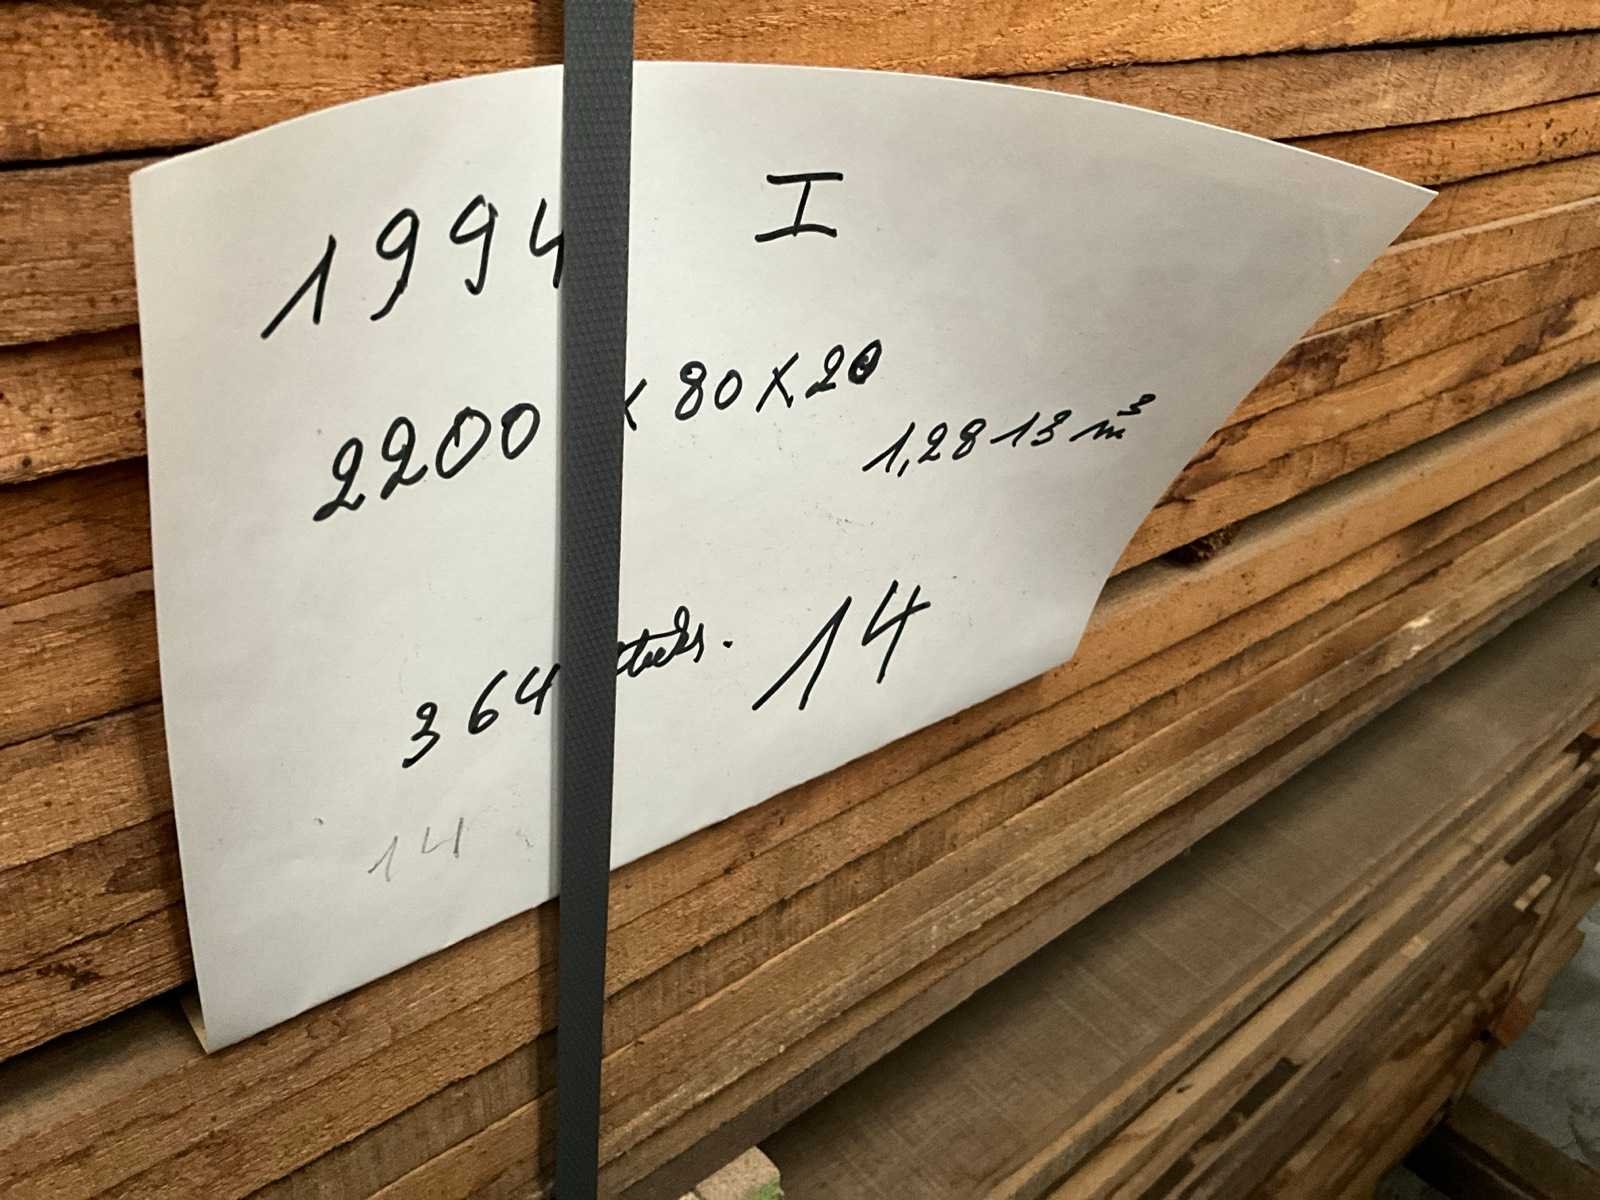 1994 I
2200 x 80 x 20
1,2813 m³
364 stuks. 14
14